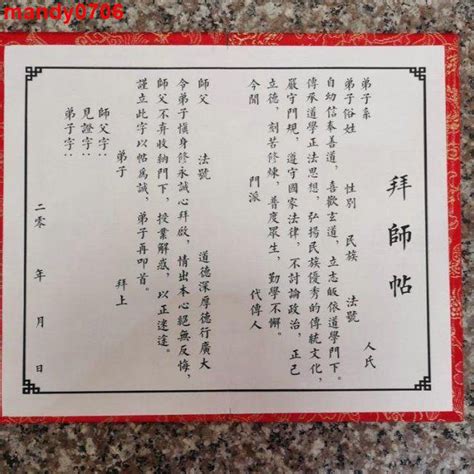 mandy0706
拜師帖
弟子系 人氏
弟子俗姓 性別 民族 法號
自幼信奉善道,喜歡玄道,立志皈依道學門下。
傳承道學正法思想,弘揚民族優秀的傳統文化,
嚴守門規,遵守國家法律,不討論政治,正己
立德,刻苦修煉,普度眾生,勤學不懈。
今聞 門派 代傳人
師父 法號 道德深厚德行廣大
令弟子慎身修永誠心拜啟,情出本心絕無反悔,
師父不弃收納門下,授業解感,以正迷途。
謹立此字以帖爲誠,弟子再叩首。
弟子 拜上
師父字:
見證字:
弟子字:
二零 年 月 日